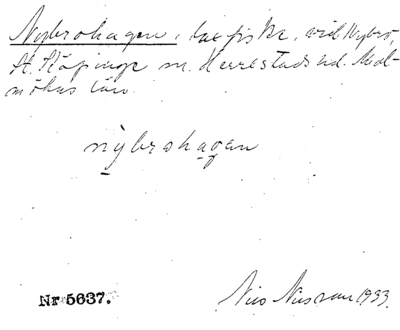 Nybrohagen, laxfiske, vid Nybro,
St. Köpinge sn. Herrestads hd. Mal-
möhus län.
nybrohagan
Nr 5637.
Nils Nilsson 1933.